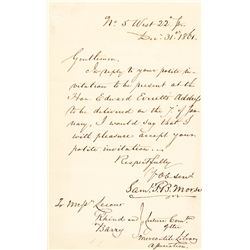 No 5 West 22d St.
Dec. 31st 1861.
Gentlemen,
In reply to your polite in-
vitation to be present at the
Hon. Edward Everett's Address
to be delivered on the 7th of Jan-
uary, I would say that I
will with pleasure accept your
polite invitation.
Respectfully
Yr ob sevt
Saml. F. B. Morse
To Messrs
Rhind and
Barry
Lecture Comte
of the
Mercantile Library
Association